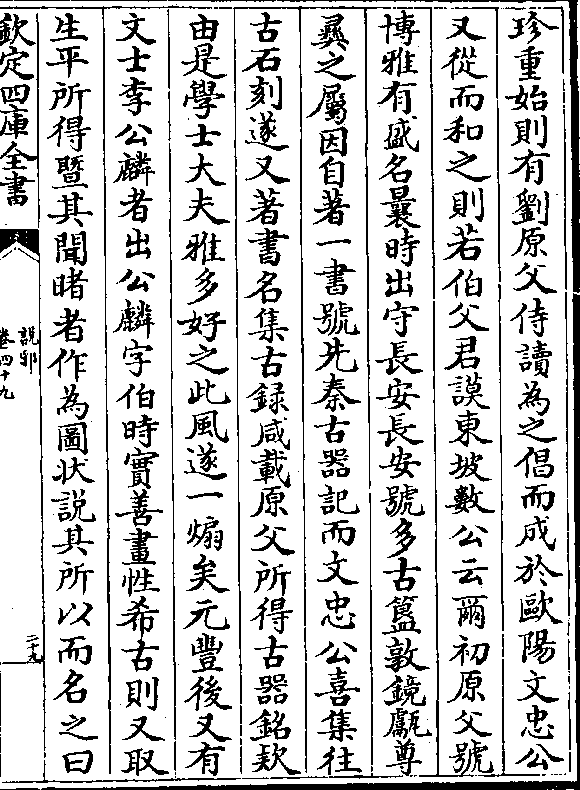 珍重始則有劉原父侍讀為之倡而成於歐陽文忠公
又從而和之則若伯父君謨東坡數公云爾初原父號
博雅有盛名曩時出守長安長安號多古簋敦鏡甗尊
彞之屬因自著一書號先秦古器記而文忠公喜集往
古石刻遂又著書名集古録咸載原父所得古器銘欵
由是學士大夫雅多好之此風遂一煽矣元豐後又有
文士李公麟者出公麟字伯時實善畫性希古則又取
生平所得暨其聞睹者作為圖狀説其所以而名之曰
欽定四庫全書
説郛
卷四十九
二十九